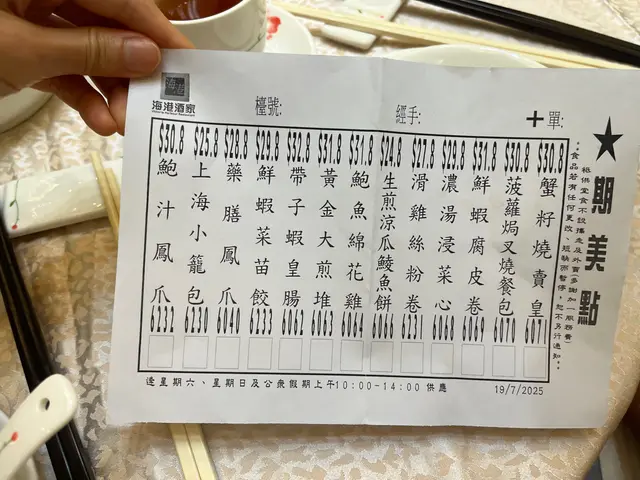 海港
海港酒家
檯號:
經手:
+單:
★期美點
祗供堂食不設攤走及外賣(多謝加一服務費)
**食品若有任何更改、短缺而暫停、恕不另行通知**
$30.8 蟹籽燒賣皇 6071
$30.8 菠蘿焗叉燒餐包 6070
$31.8 鮮蝦腐皮卷 6069
$29.8 濃湯浸菜心 6068
$27.8 滑雞絲粉卷 6131
$24.8 生煎涼瓜鯪魚餅 6066
$31.8 鮑魚綿花雞 6064
$31.8 黃金大煎堆 6063
$32.8 帶子蝦皇腸 6062
$29.8 鮮蝦菜苗餃 6233
$28.8 藥膳鳳爪 6040
$25.8 上海小籠包 6230
$30.8 鮑汁鳳爪 6232
逢星期六、星期日及公衆假期上午10:00-14:00 供應
19/7/2025